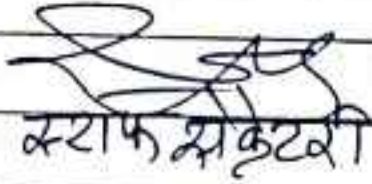 स्टाफ सेक्रेटरी